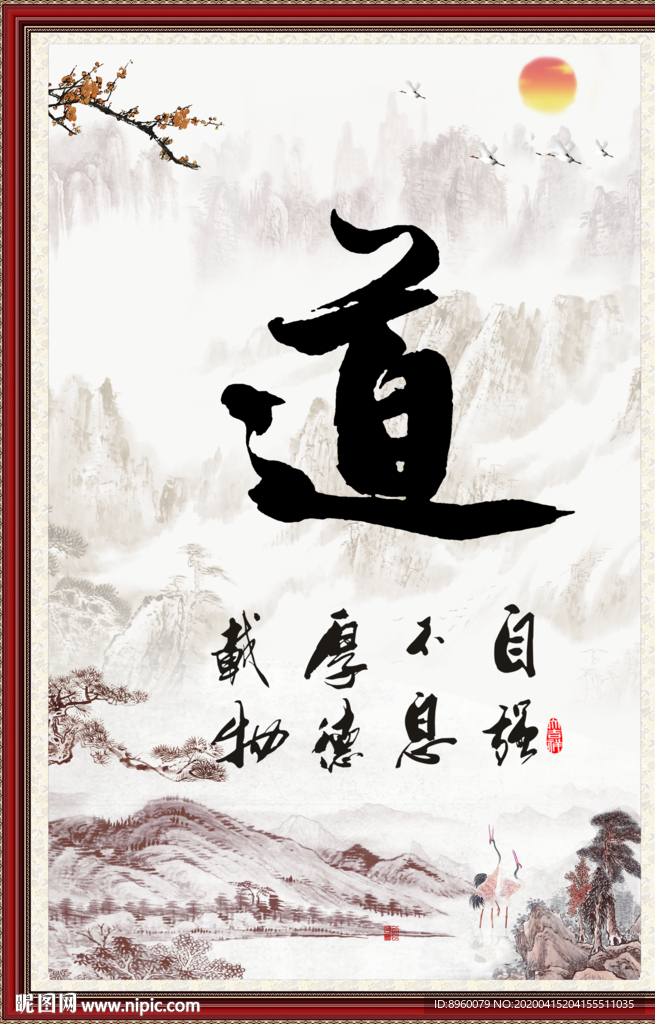 道
自强
不息
厚德
載物
昵图网 www.nipic.com
ID:8960079 NO:20200415204155511035